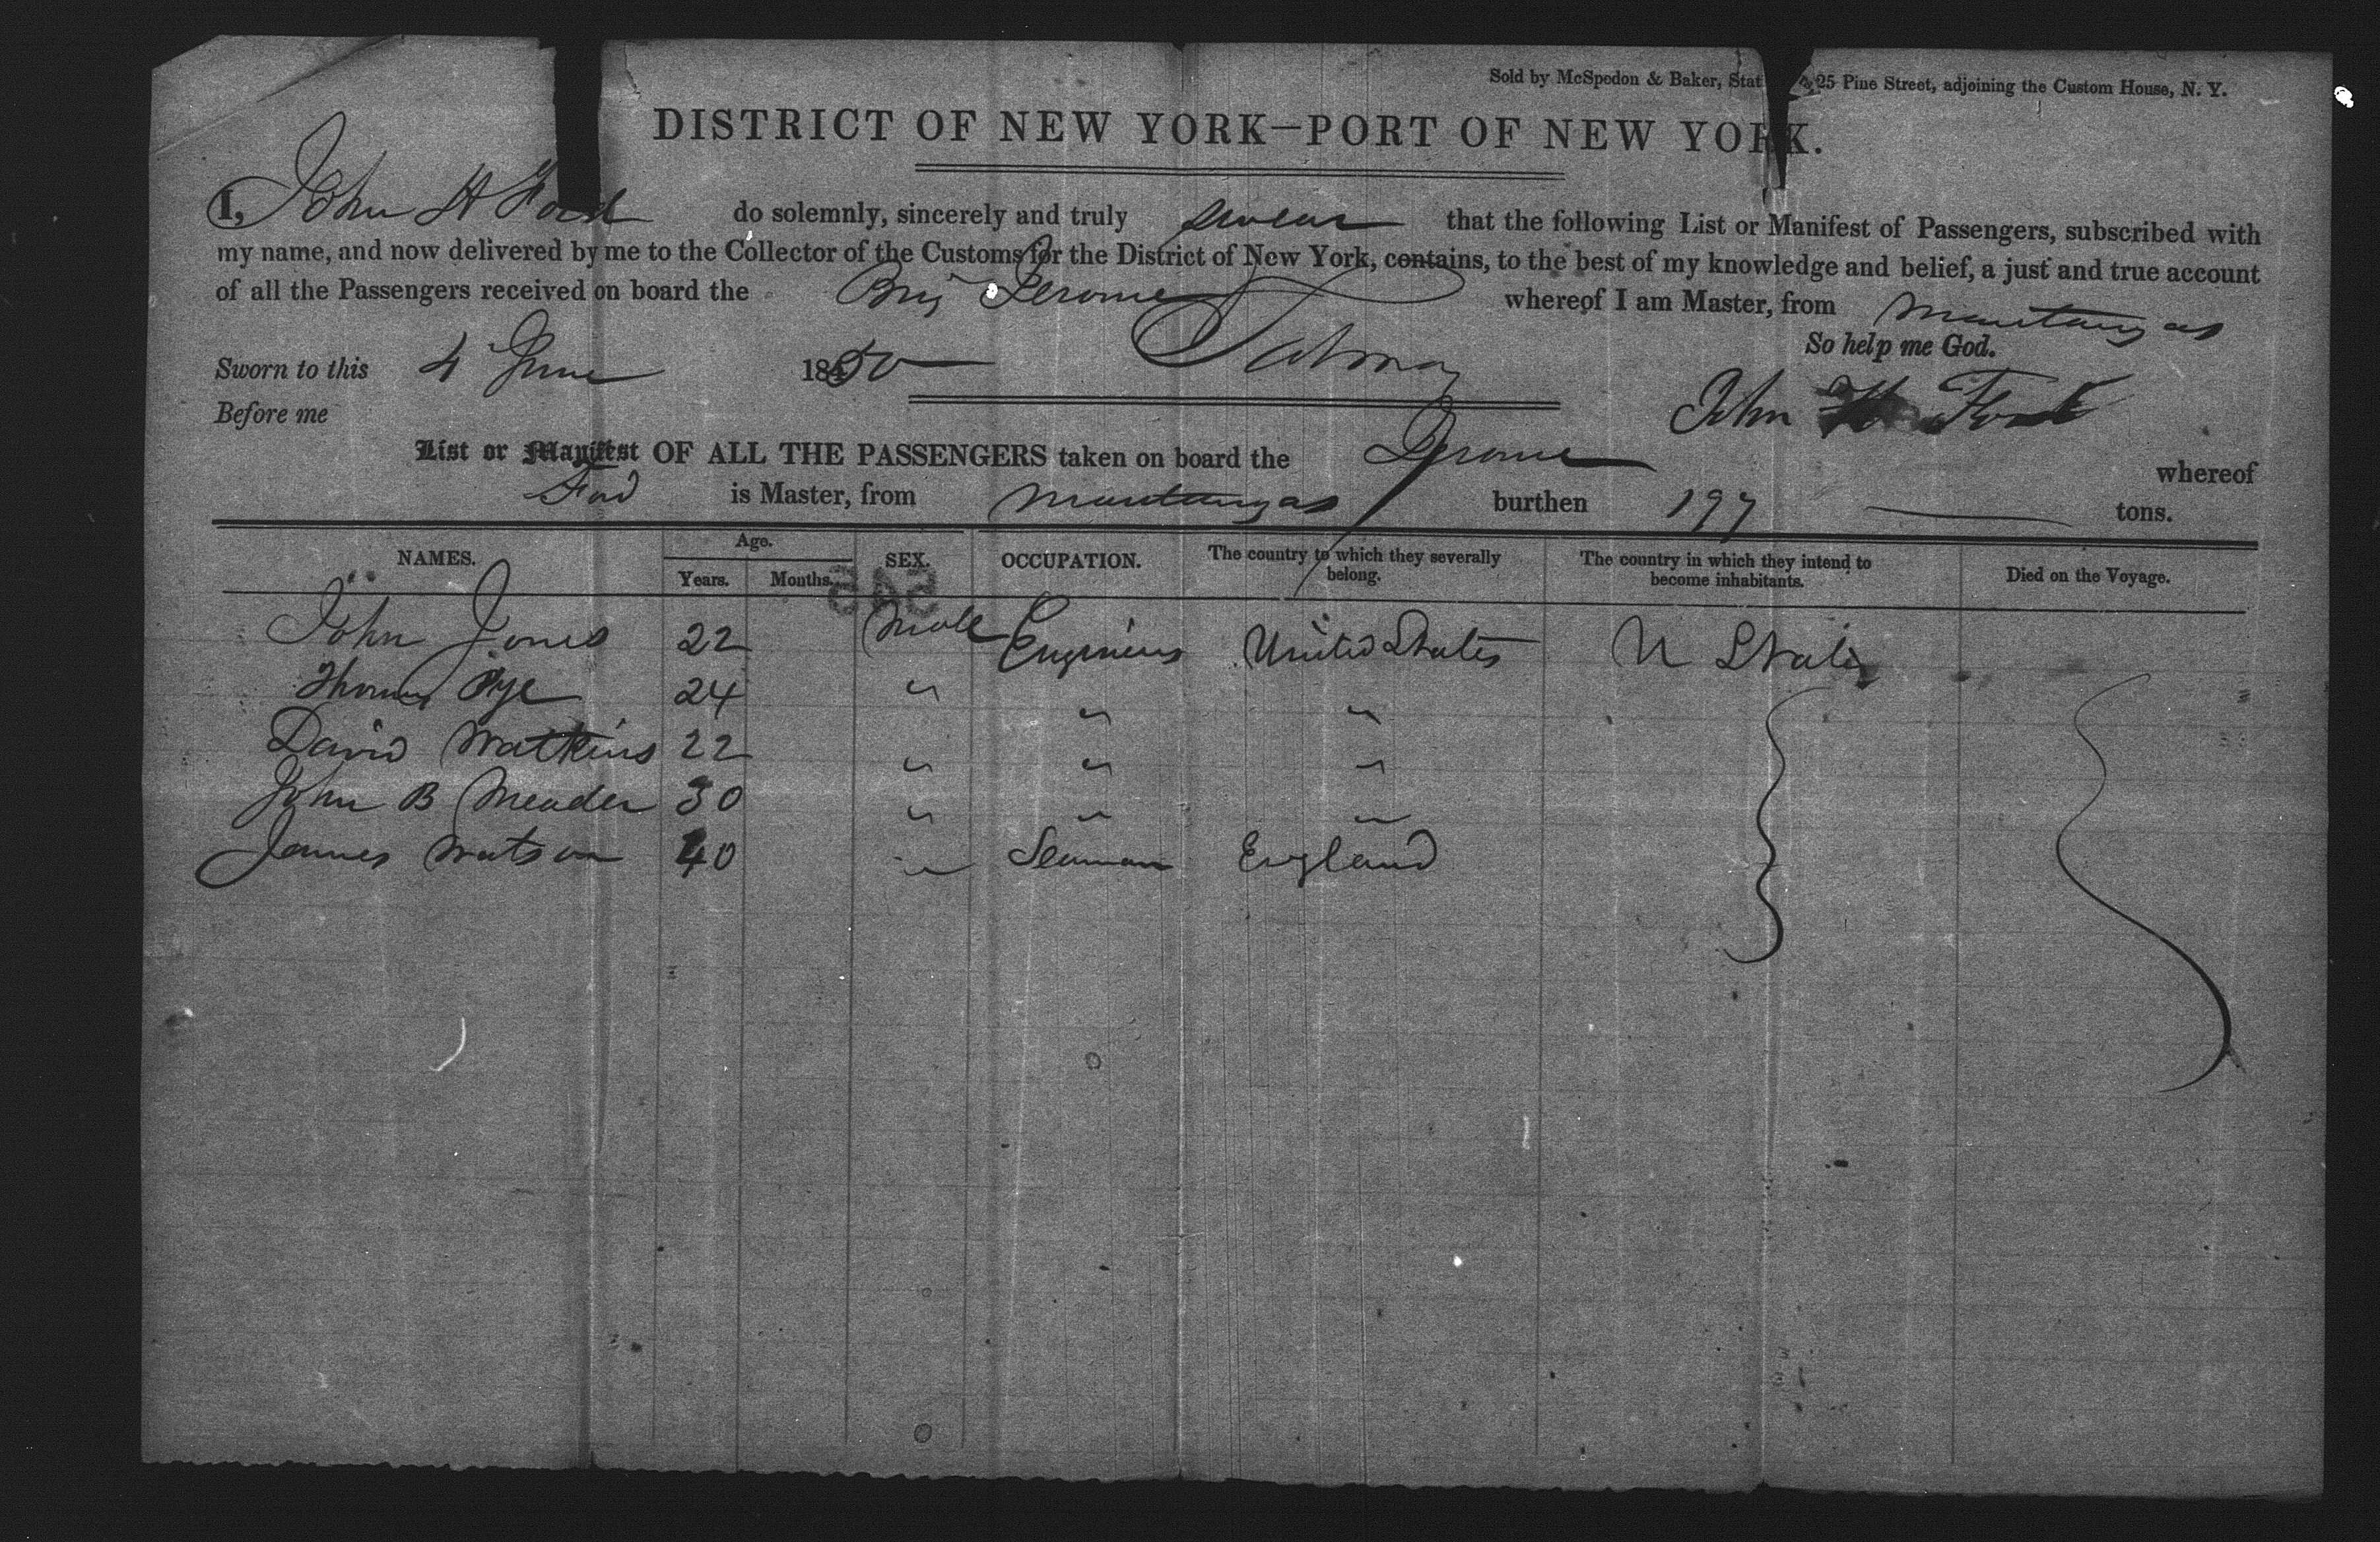 Sold by McSpedon & Baker, Stat 25 Pine Street, adjoining the Custom House, N. Y.
DISTRICT OF NEW YORK—PORT OF NEW YORK.
I, John H Ford do solemnly, sincerely and truly swear that the following List or Manifest of Passengers, subscribed with
my name, and now delivered by me to the Collector of the Customs for the District of New York, contains, to the best of my knowledge and belief, a just and true account
of all the Passengers received on board the Brig Jerome whereof I am Master, from Mantanzas
So help me God.
Sworn to this 4 June 1850
Before me
John H Ford
List or Manifest OF ALL THE PASSENGERS taken on board the Jerome whereof
Ford is Master, from Mantanzas burthen 197 tons.
NAMES. Age. SEX. OCCUPATION. The country to which they severally belong. The country in which they intend to become inhabitants. Died on the Voyage.
Years. Months.
545
John Jones 22 Male Engineers United States U States
Thomas Pye 24 " " "
David Watkins 22 " " "
John B Meader 30 " " "
James Watson 40 " Seaman England